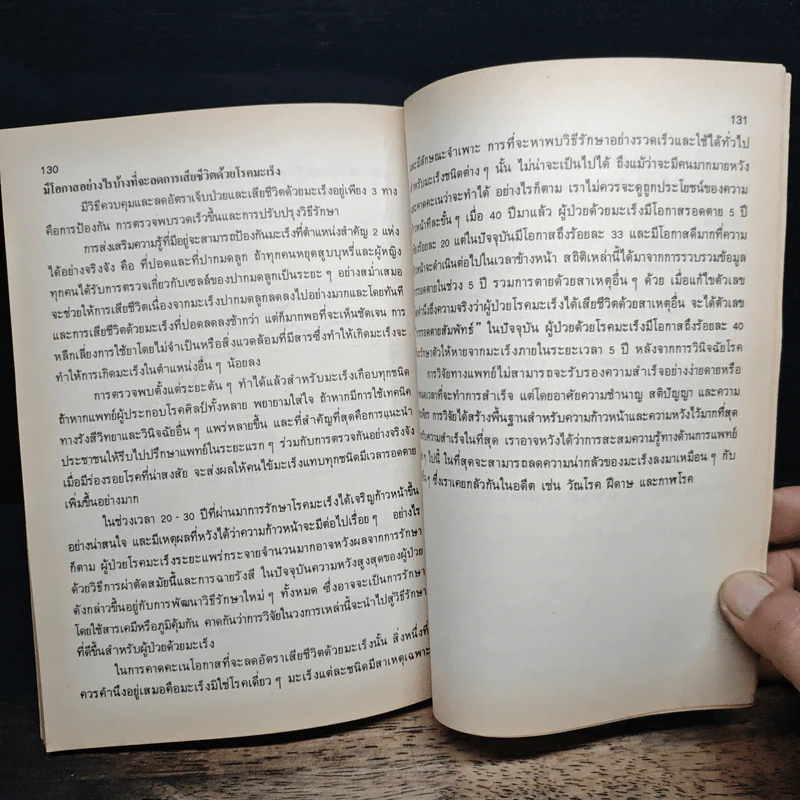 130
มีโอกาสอย่างไรบ้างที่จะลดการเสียชีวิตด้วยโรคมะเร็ง
มีวิธีควบคุมและลดอัตราเจ็บป่วยและเสียชีวิตด้วยมะเร็งอยู่เพียง 3 ทาง
คือการป้องกัน การตรวจพบรวดเร็วขึ้นและการปรับปรุงวิธีรักษา
การส่งเสริมความรู้ที่มีอยู่จะสามารถป้องกันมะเร็งที่ตำแหน่งสำคัญ 2 แห่ง
ได้อย่างจริงจัง คือ ที่ปอดและที่ปากมดลูก ถ้าทุกคนหยุดสูบบุหรี่ และผู้หญิง
ทุกคนได้รับการตรวจเกี่ยวกับเซลล์ของปากมดลูกเป็นระยะ ๆ อย่างสม่ำเสมอ
จะช่วยให้การเสียชีวิตเนื่องจากมะเร็งปากมดลูกลดลงไปอย่างมากและโดยทันที
และการเสียชีวิตด้วยมะเร็งที่ปอดลดลงช้ากว่า แต่ก็มากพอที่จะเห็นชัดเจน การ
หลีกเลี่ยงการใช้ยาโดยไม่จำเป็นหรือสิ่งแวดล้อมที่มีสารซึ่งทำให้เกิดมะเร็งจะ
ทำให้การเกิดมะเร็งในตำแหน่งอื่น ๆ น้อยลง
การตรวจพบตั้งแต่ระยะต้น ๆ ทำได้แล้วสำหรับมะเร็งเกือบทุกชนิด
ถ้าหากแพทย์ผู้ประกอบโรคศิลป์ทั้งหลาย พยายามใส่ใจ ถ้าหากมีการใช้เทคนิค
ทางรังสีวิทยาและวินิจฉัยอื่น ๆ แพร่หลายขึ้น และที่สำคัญที่สุดคือการแนะนำ
ประชาชนให้รีบไปปรึกษาแพทย์ในระยะแรก ๆ ร่วมกับการตรวจกันอย่างจริงจัง
เมื่อมีร่องรอยโรคที่น่าสงสัย จะส่งผลให้คนไข้มะเร็งแทบทุกชนิดมีเวลารอดตาย
เพิ่มขึ้นอย่างมาก
ในช่วงเวลา 20 - 30 ปีที่ผ่านมาการรักษาโรคมะเร็งได้เจริญก้าวหน้าขึ้น
อย่างน่าสนใจ และมีเหตุผลที่หวังได้ว่าความก้าวหน้าจะมีต่อไปเรื่อย ๆ อย่างไร
ก็ตาม ผู้ป่วยโรคมะเร็งระยะแพร่กระจายจำนวนมากอาจหวังผลจากการรักษา
ด้วยวิธีการผ่าตัดสมัยนี้และการฉายรังสี ในปัจจุบันความหวังสูงสุดของผู้ป่วย
ดังกล่าวขึ้นอยู่กับการพัฒนาวิธีรักษาใหม่ ๆ ทั้งหมด ซึ่งอาจจะเป็นการรักษา
โดยใช้สารเคมีหรือภูมิคุ้มกัน คาดกันว่าการวิจัยในวงการเหล่านี้จะนำไปสู่วิธีรักษา
ที่ดีขึ้นสำหรับผู้ป่วยด้วยมะเร็ง
ในการคาดคะเนโอกาสที่จะลดอัตราเสียชีวิตด้วยมะเร็งนั้น สิ่งหนึ่งที่
ควรคำนึงอยู่เสมอคือมะเร็งมิใช่โรคเดี่ยว ๆ มะเร็งแต่ละชนิดมีสาเหตุเฉพาะ
131
และมีลักษณะจำเพาะ การที่จะหาพบวิธีรักษาอย่างรวดเร็วและใช้ได้ทั่วไป
สำหรับมะเร็งชนิดต่าง ๆ นั้น ไม่น่าจะเป็นไปได้ ถึงแม้ว่าจะมีคนมากมายหวัง
และคาดคะเนว่าจะทำได้ อย่างไรก็ตาม เราไม่ควรจะดูถูกประโยชน์ของความ
หน้าทีละขั้น ๆ เมื่อ 40 ปีมาแล้ว ผู้ป่วยด้วยมะเร็งมีโอกาสรอดตาย 5 ปี
ร้อยละ 20 แต่ในปัจจุบันมีโอกาสถึงร้อยละ 33 และมีโอกาสดีมากที่ความ
หน้าจะดำเนินต่อไปในเวลาข้างหน้า สถิติเหล่านี้ได้มาจากการรวบรวมข้อมูล
รอดตายในช่วง 5 ปี รวมการตายด้วยสาเหตุอื่น ๆ ด้วย เมื่อแก้ไขตัวเลข
คำนึงถึงความจริงว่าผู้ป่วยโรคมะเร็งได้เสียชีวิตด้วยสาเหตุอื่น จะได้ตัวเลข
การรอดตายสัมพัทธ์" ในปัจจุบัน ผู้ป่วยด้วยโรคมะเร็งมีโอกาสถึงร้อยละ 40
จะรักษาตัวให้หายจากมะเร็งภายในระยะเวลา 5 ปี หลังจากการวินิจฉัยโรค
การวิจัยทางแพทย์ไม่สามารถจะรับรองความสำเร็จอย่างง่ายดายหรือ
เวลาที่จะทำการสำเร็จ แต่โดยอาศัยความชำนาญ สติปัญญา และความ
การวิจัยได้สร้างพื้นฐานสำหรับความก้าวหน้าและความหวังไว้มากที่สุด
ความสำเร็จในที่สุด เราอาจหวังได้ว่าการสะสมความรู้ทางด้านการแพทย์
ๆ ไปนี้ ในที่สุดจะสามารถลดความน่ากลัวของมะเร็งลงมาเหมือน ๆ กับ
ๆ ซึ่งเราเคยกลัวกันในอดีต เช่น วัณโรค ฝีดาษ และกาฬโรค